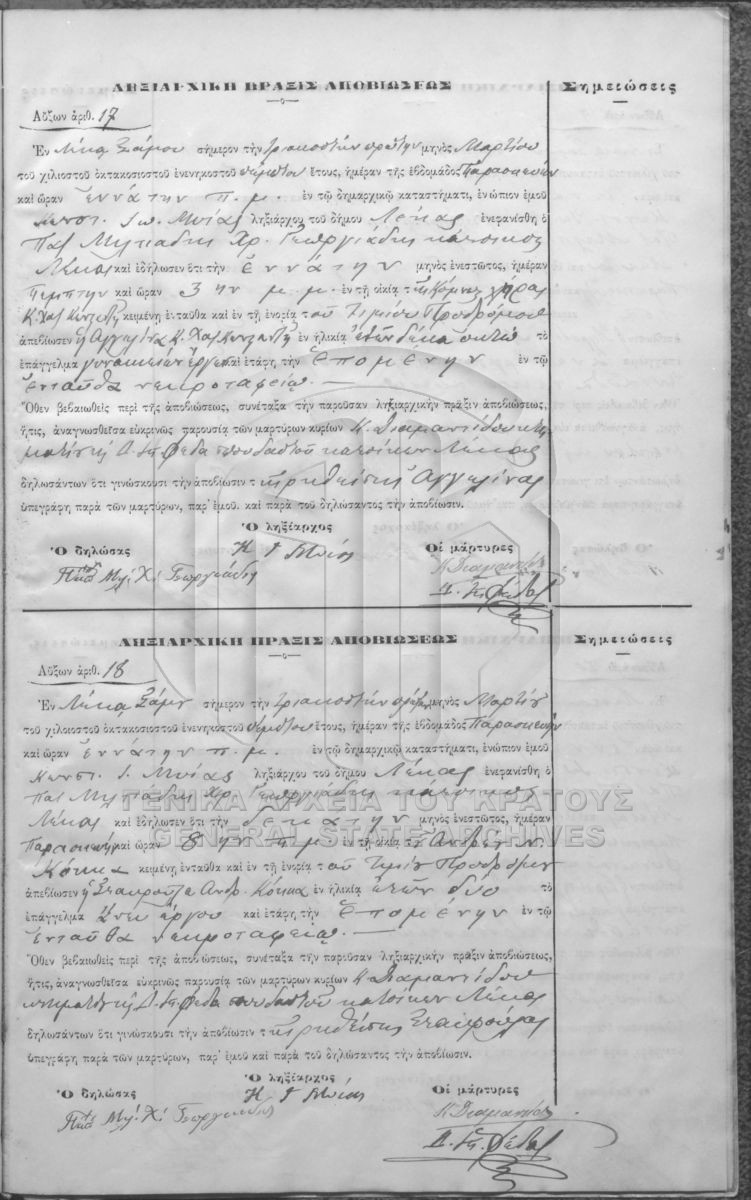 ΛΗΞΙΑΡΧΙΚΗ ΠΡΑΞΙΣ ΑΠΟΒΙΩΣΕΩΣ
Σημειώσεις
Αὔξων ἀριθ. 17
Ἐν Λέκᾳ Σάμου σήμερον τὴν τριακοστὴν πρώτην μηνὸς Μαρτίου
τοῦ χιλιοστοῦ ὀκτακοσιοστοῦ ἐνενηκοστοῦ πέμπτου ἔτους, ἡμέραν τῆς ἑβδομάδος Παρασκευὴν
καὶ ὥραν ἐννάτην π. μ. ἐν τῷ δημαρχικῷ καταστήματι, ἐνώπιον ἐμοῦ
Κωνστ. Ἰω. ληξιάρχου τοῦ δήμου Λέκας ἐνεφανίσθη ὁ
Πα Μιλτιάδης Χρ. Γεωργιάδης κάτοικος
Λέκας καὶ ἐδήλωσεν ὅτι τὴν ἐννάτην μηνὸς ἐνεστῶτος, ἡμέραν
Πέμπτην καὶ ὥραν 3ην μ. μ. ἐν τῇ οἰκίᾳ τ χήρας
Κ. κειμένῃ ἐνταῦθα καὶ ἐν τῇ ἐνορίᾳ τοῦ Τιμίου Προδρόμου
ἀπεβίωσεν ἡ Ἀγγελίνα Κ. ἐν ἡλικίᾳ ἐτῶν δέκα ὀκτὼ τὸ
ἐπάγγελμα γυναικείων ἔργων καὶ ἐτάφη τὴν ἑπομένην ἐν τῷ
ἐνταῦθα νεκροταφείῳ. —
Ὅθεν βεβαιωθεὶς περὶ τῆς ἀποβιώσεως, συνέταξα τὴν παροῦσαν ληξιαρχικὴν πρᾶξιν ἀποβιώσεως,
ἥτις, ἀναγνωσθεῖσα εὐκρινῶς παρουσίᾳ τῶν μαρτύρων κυρίων Κ. Διαμαντίδου κτη
ματίου Δ. κατοίκων Λέκας
δηλωσάντων ὅτι γινώσκουσι τὴν ἀποβίωσιν τῆς ῥηθείσης Ἀγγελίνας
ὑπεγράφη παρὰ τῶν μαρτύρων, παρ' ἐμοῦ. καὶ παρὰ τοῦ δηλώσαντος τὴν ἀποβίωσιν.
Ὁ ληξίαρχος
Ὁ δηλώσας
Οἱ μάρτυρες
Μιλ. Χ. Γεωργιάδης
Κ Διαμαντίδης
ΛΗΞΙΑΡΧΙΚΗ ΠΡΑΞΙΣ ΑΠΟΒΙΩΣΕΩΣ
Σημειώσεις
Αὔξων ἀριθ. 18
Ἐν Λέκᾳ Σάμου σήμερον τὴν τριακοστὴν πρώτην μηνὸς Μαρτίου
τοῦ χιλιοστοῦ ὀκτακοσιοστοῦ ἐνενηκοστοῦ πέμπτου ἔτους, ἡμέραν τῆς ἑβδομάδος Παρασκευὴν
καὶ ὥραν ἐννάτην π. μ. ἐν τῷ δημαρχικῷ καταστήματι, ἐνώπιον ἐμοῦ
Κωνστ. Ἰ. ληξιάρχου τοῦ δήμου Λέκας ἐνεφανίσθη ὁ
Πα Μιλτιάδης Χρ. Γεωργιάδης κάτοικος
ΓΕΝΙΚΑ ΑΡΧΕΙΑ ΤΟΥ ΚΡΑΤΟΥΣ
Λέκας καὶ ἐδήλωσεν ὅτι τὴν δεκάτην μηνὸς ἐνεστῶτος, ἡμέραν
GENERAL STATE ARCHIVES
Παρασκευὴν καὶ ὥραν 8ην π. μ. ἐν τῇ οἰκίᾳ τ Ἀνδρέου Ν.
Κόκκα κειμένῃ ἐνταῦθα καὶ ἐν τῇ ἐνορίᾳ τοῦ Τιμίου Προδρόμου
ἀπεβίωσεν ἡ Σταυρούλα Ἀνδρ. Κόκκα ἐν ἡλικίᾳ ἐτῶν δύο τὸ
ἐπάγγελμα ἄνευ ἔργου καὶ ἐτάφη τὴν ἑπομένην ἐν τῷ
ἐνταῦθα νεκροταφείῳ. —
Ὅθεν βεβαιωθεὶς περὶ τῆς ἀποβιώσεως, συνέταξα τὴν παροῦσαν ληξιαρχικὴν πρᾶξιν ἀποβιώσεως,
ἥτις, ἀναγνωσθεῖσα εὐκρινῶς παρουσίᾳ τῶν μαρτύρων κυρίων Κ. Διαμαντίδου
Δ. κατοίκων Λέκας
δηλωσάντων ὅτι γινώσκουσι τὴν ἀποβίωσιν τῆς ῥηθείσης Σταυρούλας
ὑπεγράφη παρὰ τῶν μαρτύρων, παρ' ἐμοῦ καὶ παρὰ τοῦ δηλώσαντος τὴν ἀποβίωσιν.
Ὁ ληξίαρχος
Ὁ δηλώσας
Οἱ μάρτυρες
Μιλ. Χ. Γεωργιάδης
Κ Διαμαντίδης